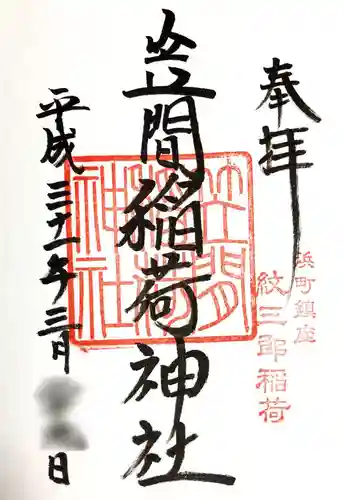 奉拝
浜町鎮座
紋三郎稲荷
笠間稲荷神社
笠間
稲荷
神社
平成三十一年三月
日